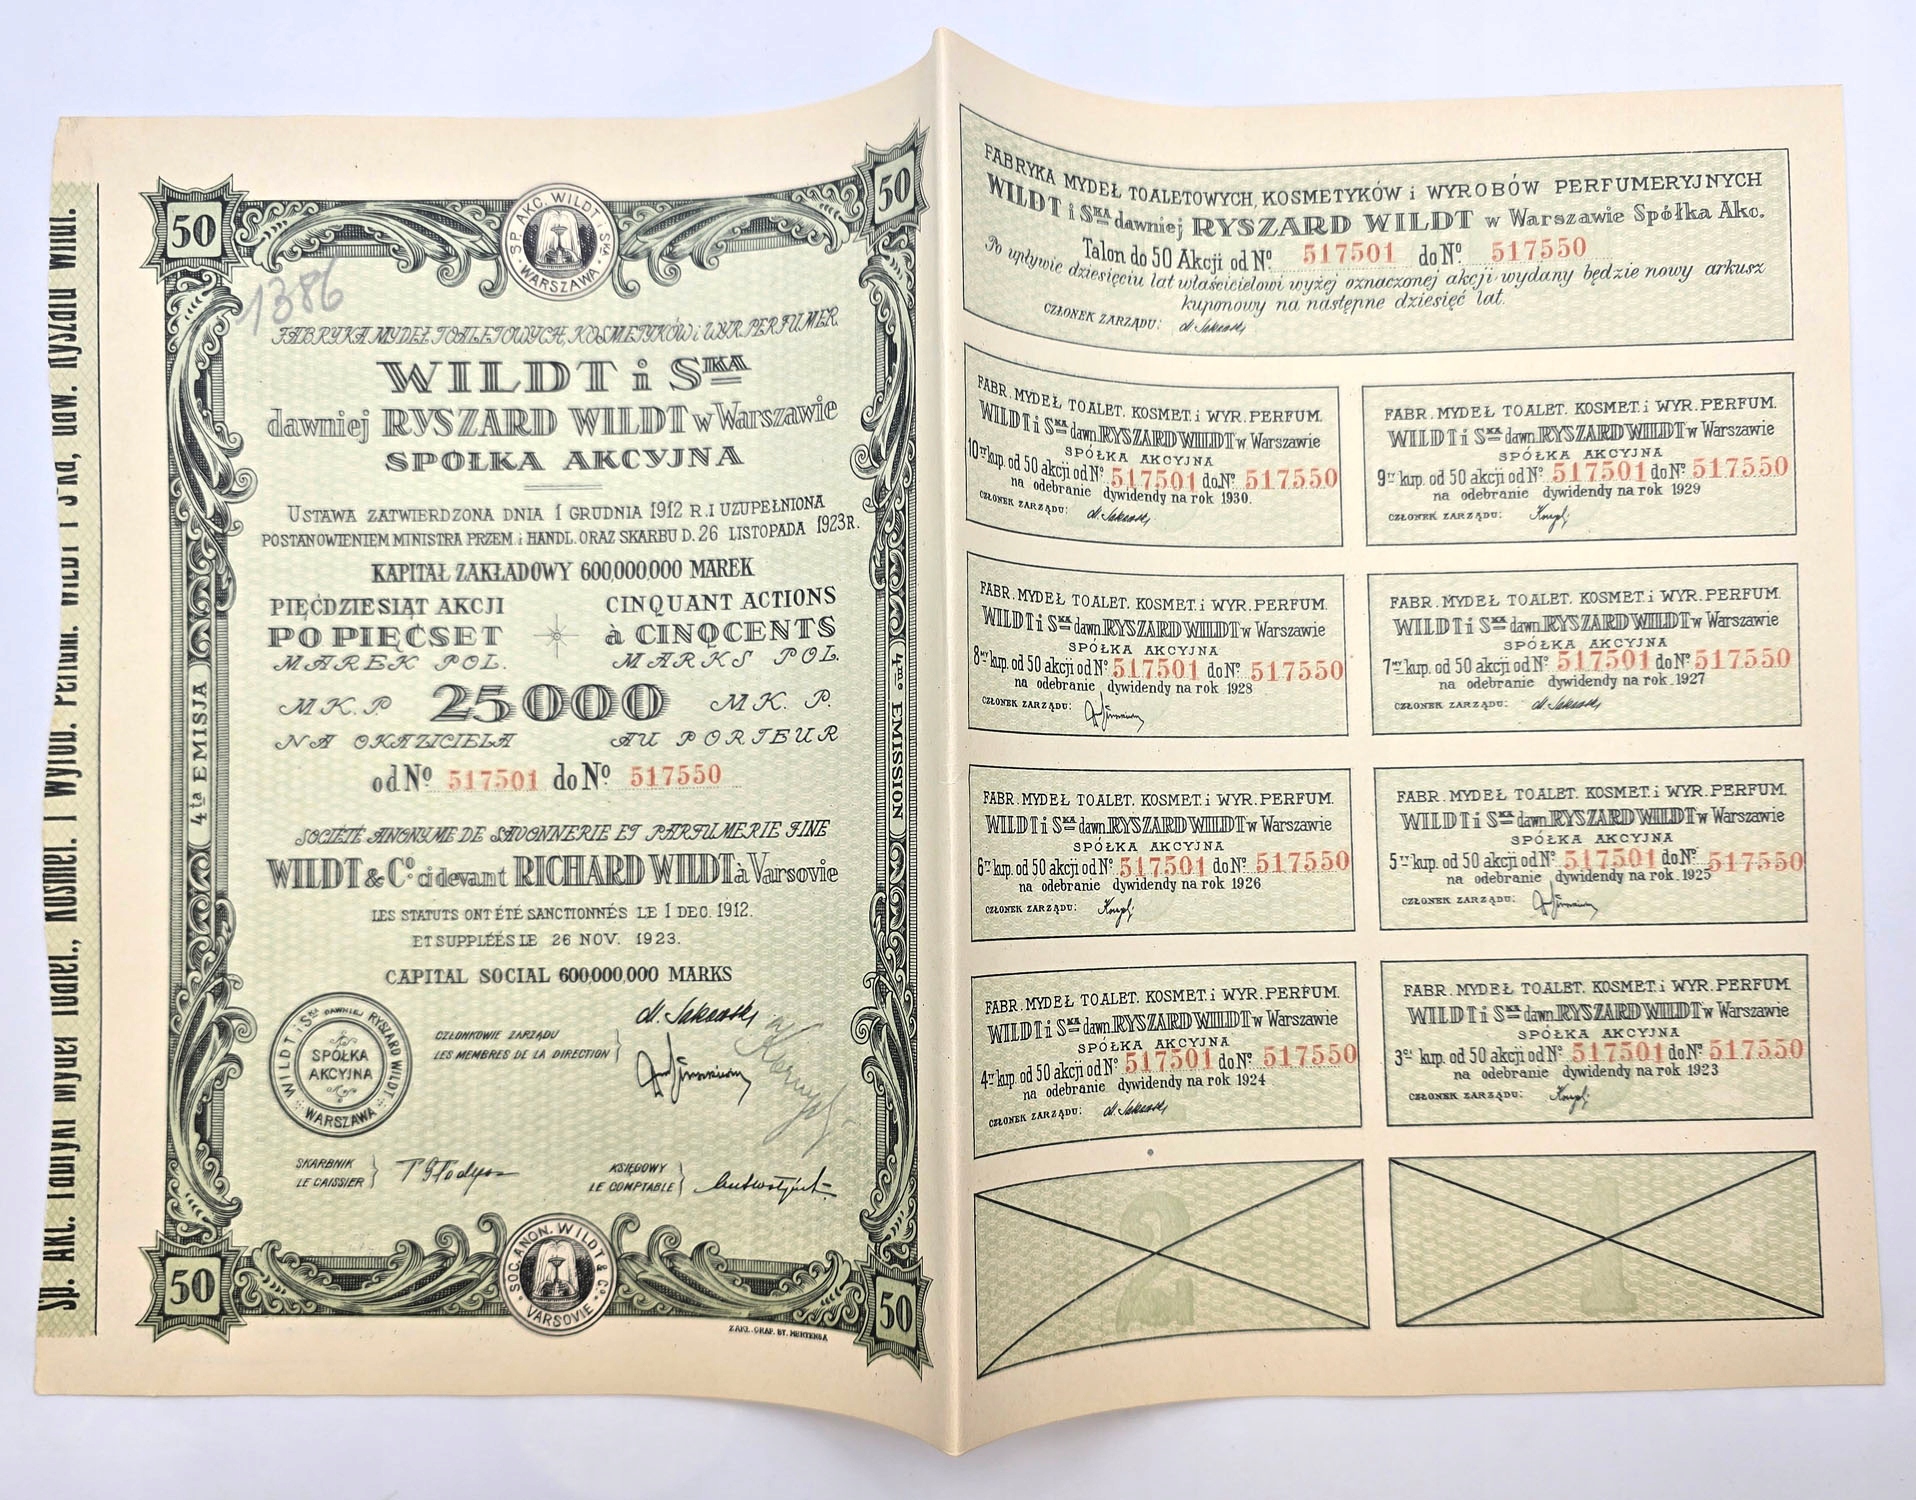 Sp. Akc. Fabryki Mydeł Toalet., Kosmet. i Wyrob. Perfum. WILDT i S-ka, daw. Ryszard Wildt.
50
50
SP. AKC. WILDT i SKA
WARSZAWA
1386
FABRYKA MYDEŁ TOALETOWYCH, KOSMETYKÓW i WYR. PERFUMER.
WILDT i SKA
dawniej RYSZARD WILDT w Warszawie
SPÓŁKA AKCYJNA
USTAWA ZATWIERDZONA DNIA 1 GRUDNIA 1912 R. I UZUPEŁNIONA
POSTANOWIENIEM MINISTRA PRZEM. i HANDL. ORAZ SKARBU D. 26 LISTOPADA 1923 R.
KAPITAŁ ZAKŁADOWY 600,000,000 MAREK
PIĘĆDZIESIĄT AKCJI CINQUANT ACTIONS
PO PIĘĆSET à CINQCENTS
MAREK POL. MARKS POL.
MK. P 25000 MK. P.
NA OKAZICIELA AU PORTEUR
od No 517501 do No. 517550
4ta EMISJA
4me EMISSION
SOCIÉTÉ ANONYME DE SAVONNERIE ET PARFUMERIE FINE
WILDT & Co. ci devant RICHARD WILDT à Varsovie
LES STATUTS ONT ÉTÉ SANCTIONNÉS LE 1 DEC. 1912.
ET SUPPLÉÉS LE 26 NOV. 1923.
CAPITAL SOCIAL 600,000,000 MARKS
WILDT i SKA DAWNIEJ RYSZARD WILDT
SPÓŁKA
AKCYJNA
WARSZAWA
CZŁONKOWIE ZARZĄDU
LES MEMBRES DE LA DIRECTION
SKARBNIK
LE CAISSIER
KSIĘGOWY
LE COMPTABLE
SOC. ANON. WILDT & Co.
VARSOVIE
50
50
ZAKŁ. GRAF. ST. MERTENSA
FABRYKA MYDEŁ TOALETOWYCH, KOSMETYKÓW i WYROBÓW PERFUMERYJNYCH
WILDT i SKA dawniej RYSZARD WILDT w Warszawie Spółka Akc.
Talon do 50 Akcji od No. 517501 do No. 517550
Po upływie dziesięciu lat właścicielowi wyżej oznaczonej akcji wydany będzie nowy arkusz
kuponowy na następne dziesięć lat.
CZŁONEK ZARZĄDU:
FABR. MYDEŁ TOALET. KOSMET. i WYR. PERFUM.
WILDT i SKA dawn. RYSZARD WILDT w Warszawie
SPÓŁKA AKCYJNA
10ty kup. od 50 akcji od No. 517501 do No. 517550
na odebranie dywidendy na rok 1930.
CZŁONEK ZARZĄDU:
FABR. MYDEŁ TOALET. KOSMET. i WYR. PERFUM.
WILDT i SKA dawn. RYSZARD WILDT w Warszawie
SPÓŁKA AKCYJNA
9ty kup. od 50 akcji od No. 517501 do No. 517550
na odebranie dywidendy na rok 1929
CZŁONEK ZARZĄDU:
FABR. MYDEŁ TOALET. KOSMET. i WYR. PERFUM.
WILDT i SKA dawn. RYSZARD WILDT w Warszawie
SPÓŁKA AKCYJNA
8my kup. od 50 akcji od No. 517501 do No. 517550
na odebranie dywidendy na rok 1928
CZŁONEK ZARZĄDU:
FABR. MYDEŁ TOALET. KOSMET. i WYR. PERFUM.
WILDT i SKA dawn. RYSZARD WILDT w Warszawie
SPÓŁKA AKCYJNA
7my kup. od 50 akcji od No. 517501 do No. 517550
na odebranie dywidendy na rok 1927
CZŁONEK ZARZĄDU:
FABR. MYDEŁ TOALET. KOSMET. i WYR. PERFUM.
WILDT i SKA dawn. RYSZARD WILDT w Warszawie
SPÓŁKA AKCYJNA
6ty kup. od 50 akcji od No. 517501 do No. 517550
na odebranie dywidendy na rok 1926
CZŁONEK ZARZĄDU:
FABR. MYDEŁ TOALET. KOSMET. i WYR. PERFUM.
WILDT i SKA dawn. RYSZARD WILDT w Warszawie
SPÓŁKA AKCYJNA
5ty kup. od 50 akcji od No. 517501 do No. 517550
na odebranie dywidendy na rok 1925
CZŁONEK ZARZĄDU:
FABR. MYDEŁ TOALET. KOSMET. i WYR. PERFUM.
WILDT i SKA dawn. RYSZARD WILDT w Warszawie
SPÓŁKA AKCYJNA
4ty kup. od 50 akcji od No. 517501 do No. 517550
na odebranie dywidendy na rok 1924
CZŁONEK ZARZĄDU:
FABR. MYDEŁ TOALET. KOSMET. i WYR. PERFUM.
WILDT i SKA dawn. RYSZARD WILDT w Warszawie
SPÓŁKA AKCYJNA
3ci kup. od 50 akcji od No. 517501 do No. 517550
na odebranie dywidendy na rok 1923
CZŁONEK ZARZĄDU:
2
1